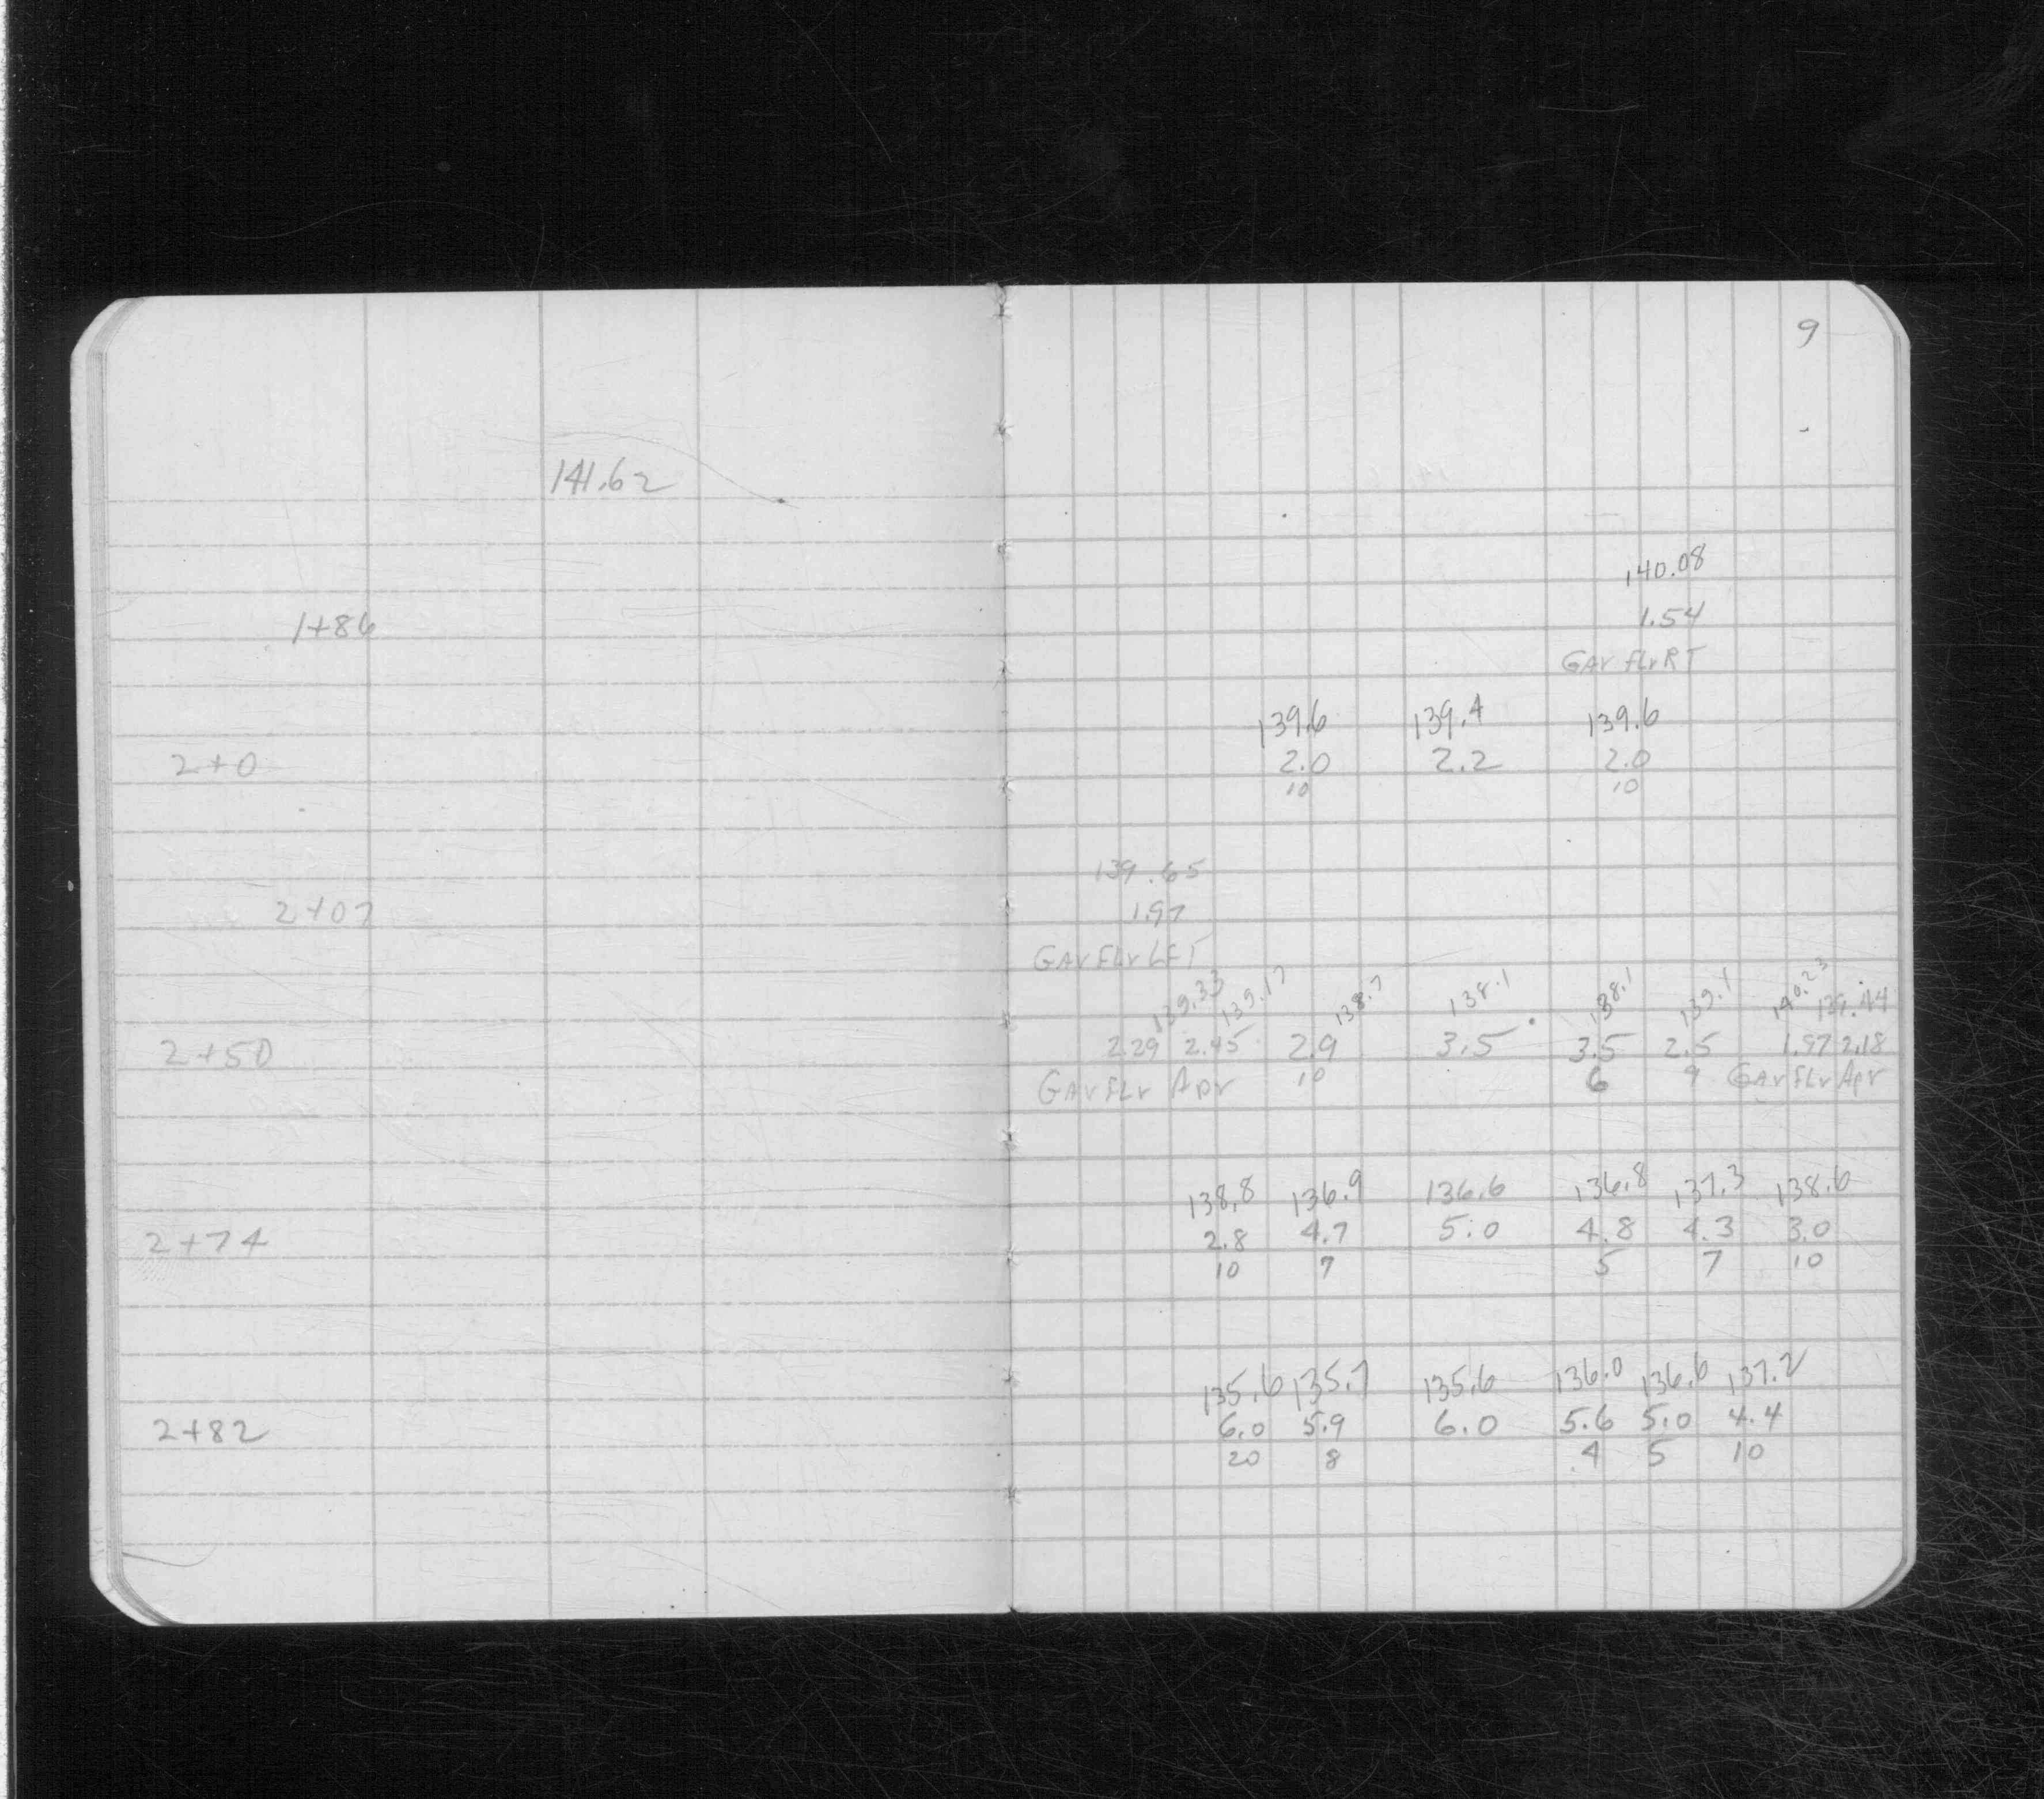 9
141.62
140.08
1+86 1.54
GAr FLr RT
139.6 139.4 139.6
2+0 2.0 2.2 2.0
10 10
139.65
2+07 1.97
GAr FLr LFT
139.33 139.17 138.7 138.1 138.1 139.1 140.23 139.44
2+50 2.29 2.45 2.9 3.5 3.5 2.5 1.97 2.18
GAr FLr Apr 10 6 9 GAr FLr Apr
138.8 136.9 136.6 136.8 137.3 138.6
2+74 2.8 4.7 5.0 4.8 4.3 3.0
10 7 5 7 10
135.6 135.7 135.6 136.0 136.6 137.2
2+82 6.0 5.9 6.0 5.6 5.0 4.4
20 8 4 5 10